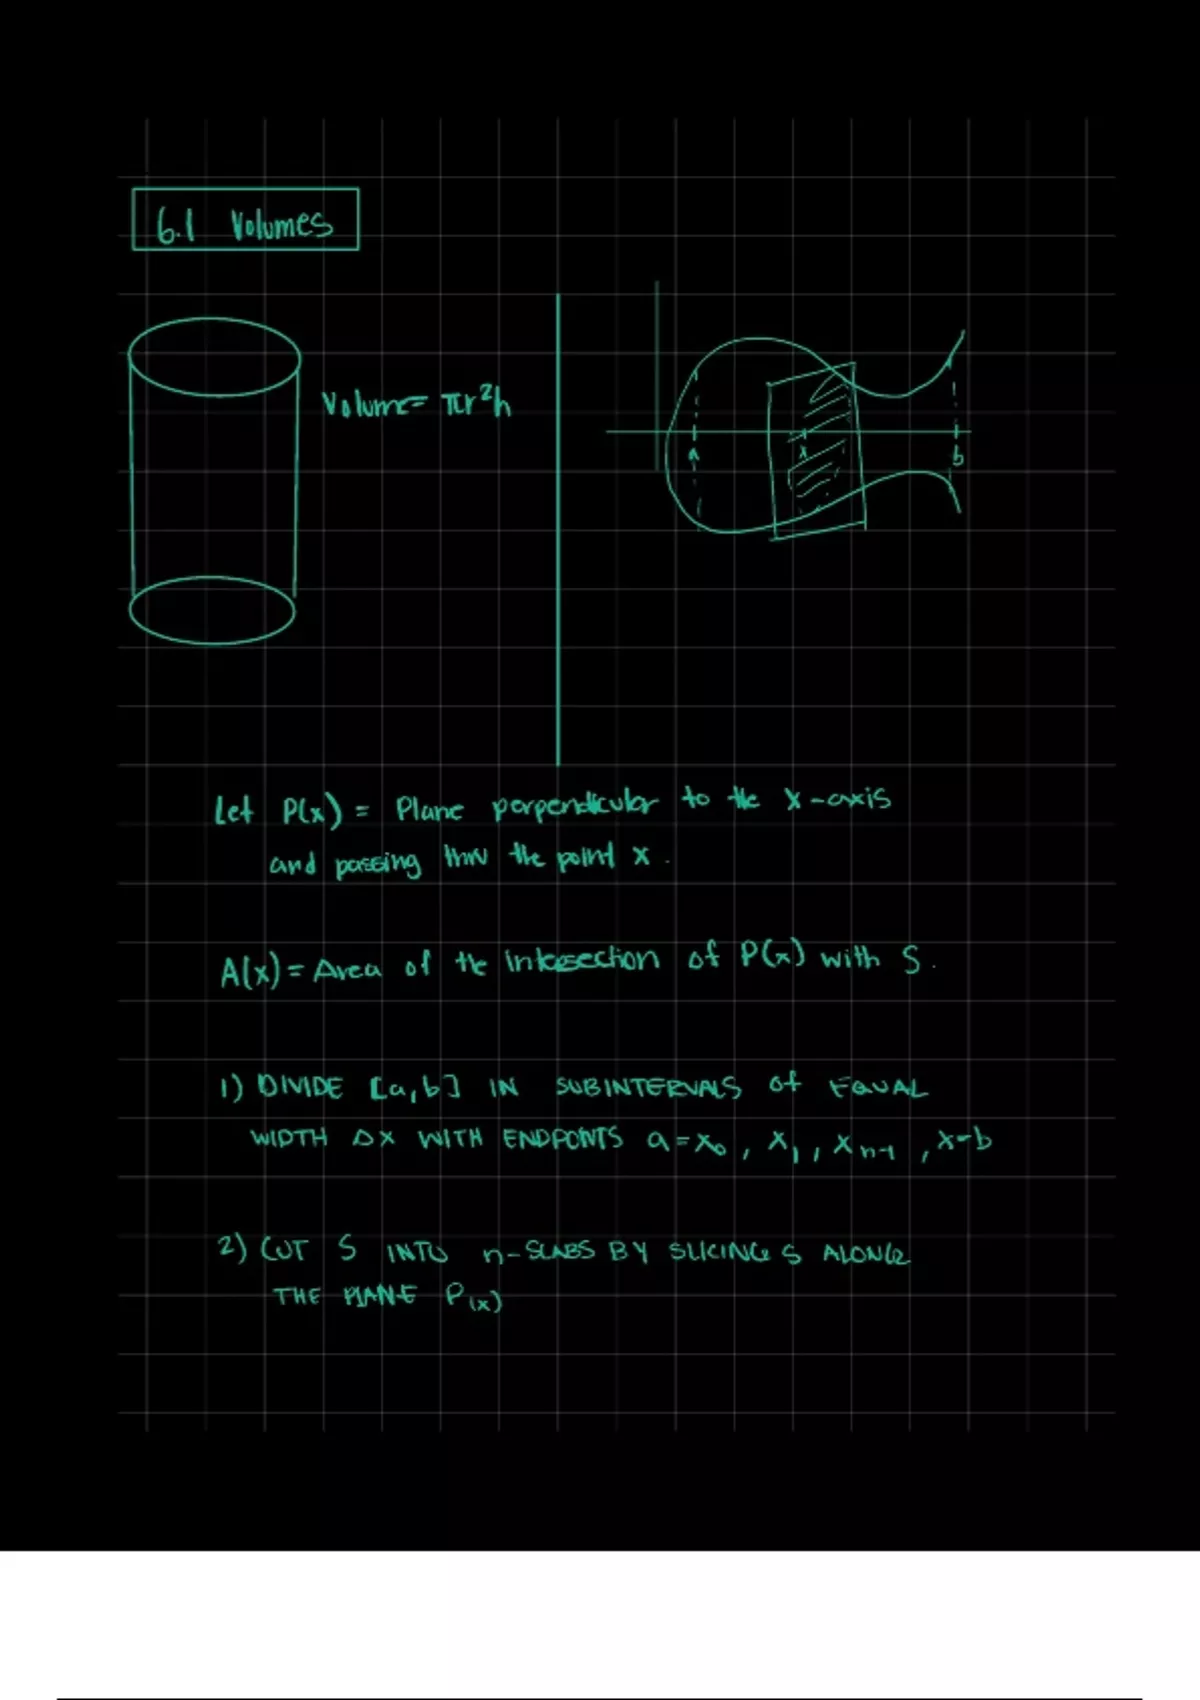 6.1 Volumes
Volume= πr²h
a
x
b
Let P(x) = Plane perpendicular to the x-axis
and passing thru the point x.
A(x) = Area of the intersection of P(x) with S.
1) DIVIDE [a,b] IN SUBINTERVALS of EQUAL
WIDTH Δx WITH ENDPOINTS a=x₀, x₁, xₙ₋₁, x=b
2) CUT S INTO n-SLABS BY SLICING S ALONG
THE PLANE P(x)